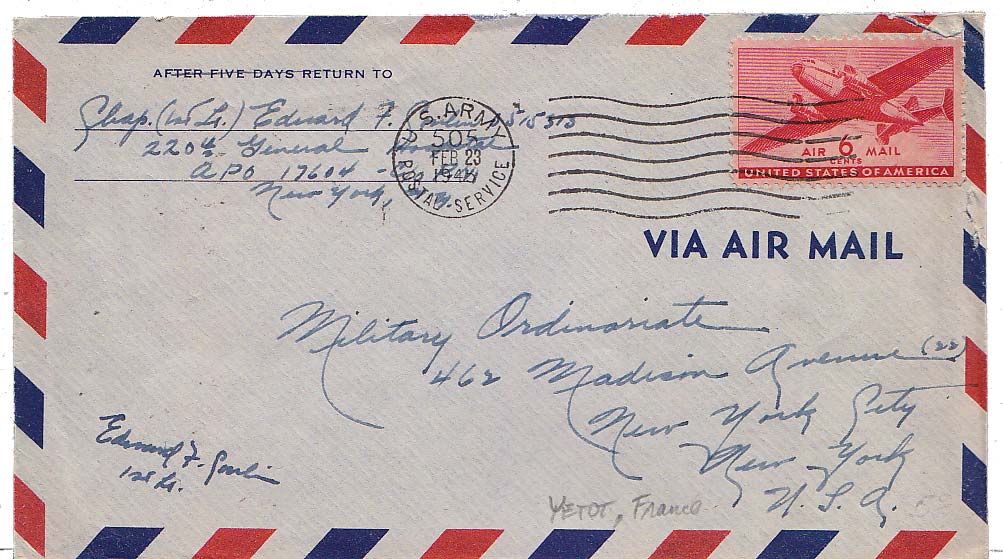 AFTER FIVE DAYS RETURN TO
Chap. (1st Lt.) Edward F.
220th General
APO 17604 -
New York, N.Y.
U.S. ARMY
505
FEB 23
POSTAL SERVICE
AIR 6 MAIL
CENTS
UNITED STATES OF AMERICA
VIA AIR MAIL
Military Ordinariate
462 Madison Avenue (22)
New York City
New York
U.S.A.
Edward F.
1st Lt.
YETOT, France